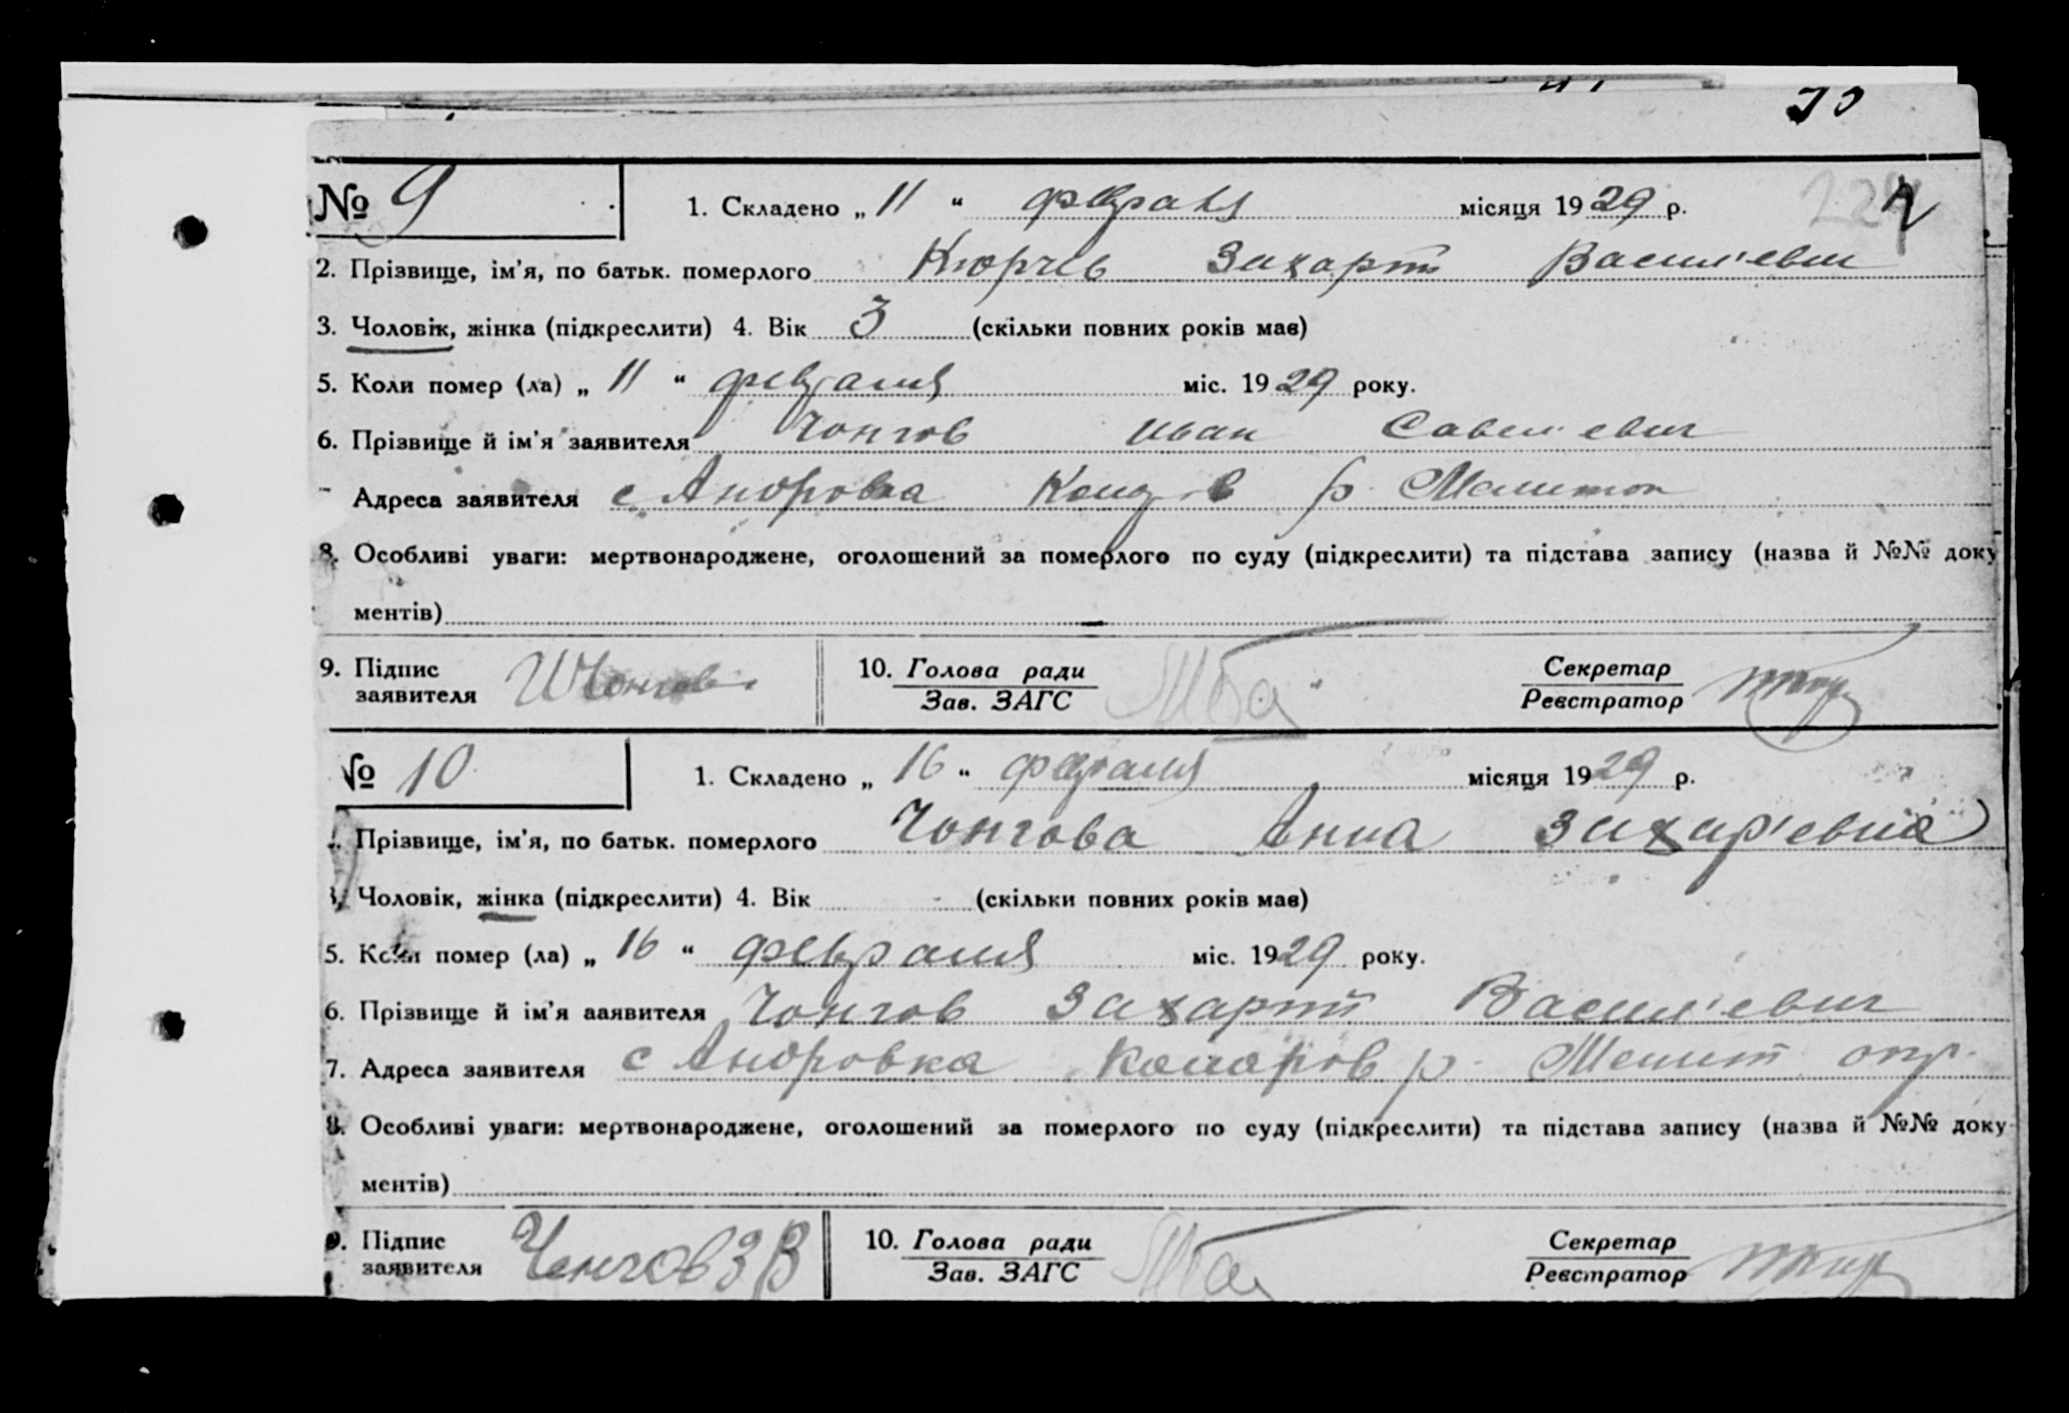 30
№ 9 1. Складено „ 11 “ февраля місяця 1929 р.
2. Прізвище, ім’я, по батьк. померлого Кюрчев Захарий Василиевич
3. Чоловік, жінка (підкреслити) 4. Вік 3 (скільки повних років має)
5. Коли помер (ла) „ 11 “ февралия міс. 1929 року.
6. Прізвище й ім’я заявителя Чонгов Иван Савелиевич
Адреса заявителя с Андровка р. Мелитоп
8. Особливі уваги: мертвонароджене, оголошений за померлого по суду (підкреслити) та підстава запису (назва й №№ доку
ментів)
9. Підпис заявителя И Чонгов 10. Голова ради Секретар
Зав. ЗАГС Реєстратор
№ 10 1. Складено „ 16 “ февралия місяця 1929 р.
Прізвище, ім’я, по батьк. померлого Чонгова Анна Захариевна
Чоловік, жінка (підкреслити) 4. Вік - (скільки повних років має)
5. Коли помер (ла) „ 16 “ февралия міс. 1929 року.
6. Прізвище й ім’я заявителя Чонгов Захарий Василиевич
7. Адреса заявителя с Андровка Комаров р. Мелит окр.
8. Особливі уваги: мертвонароджене, оголошений за померлого по суду (підкреслити) та підстава запису (назва й №№ доку-
ментів)
9. Підпис заявителя Ченгов З В 10. Голова ради Секретар
Зав. ЗАГС Реєстратор